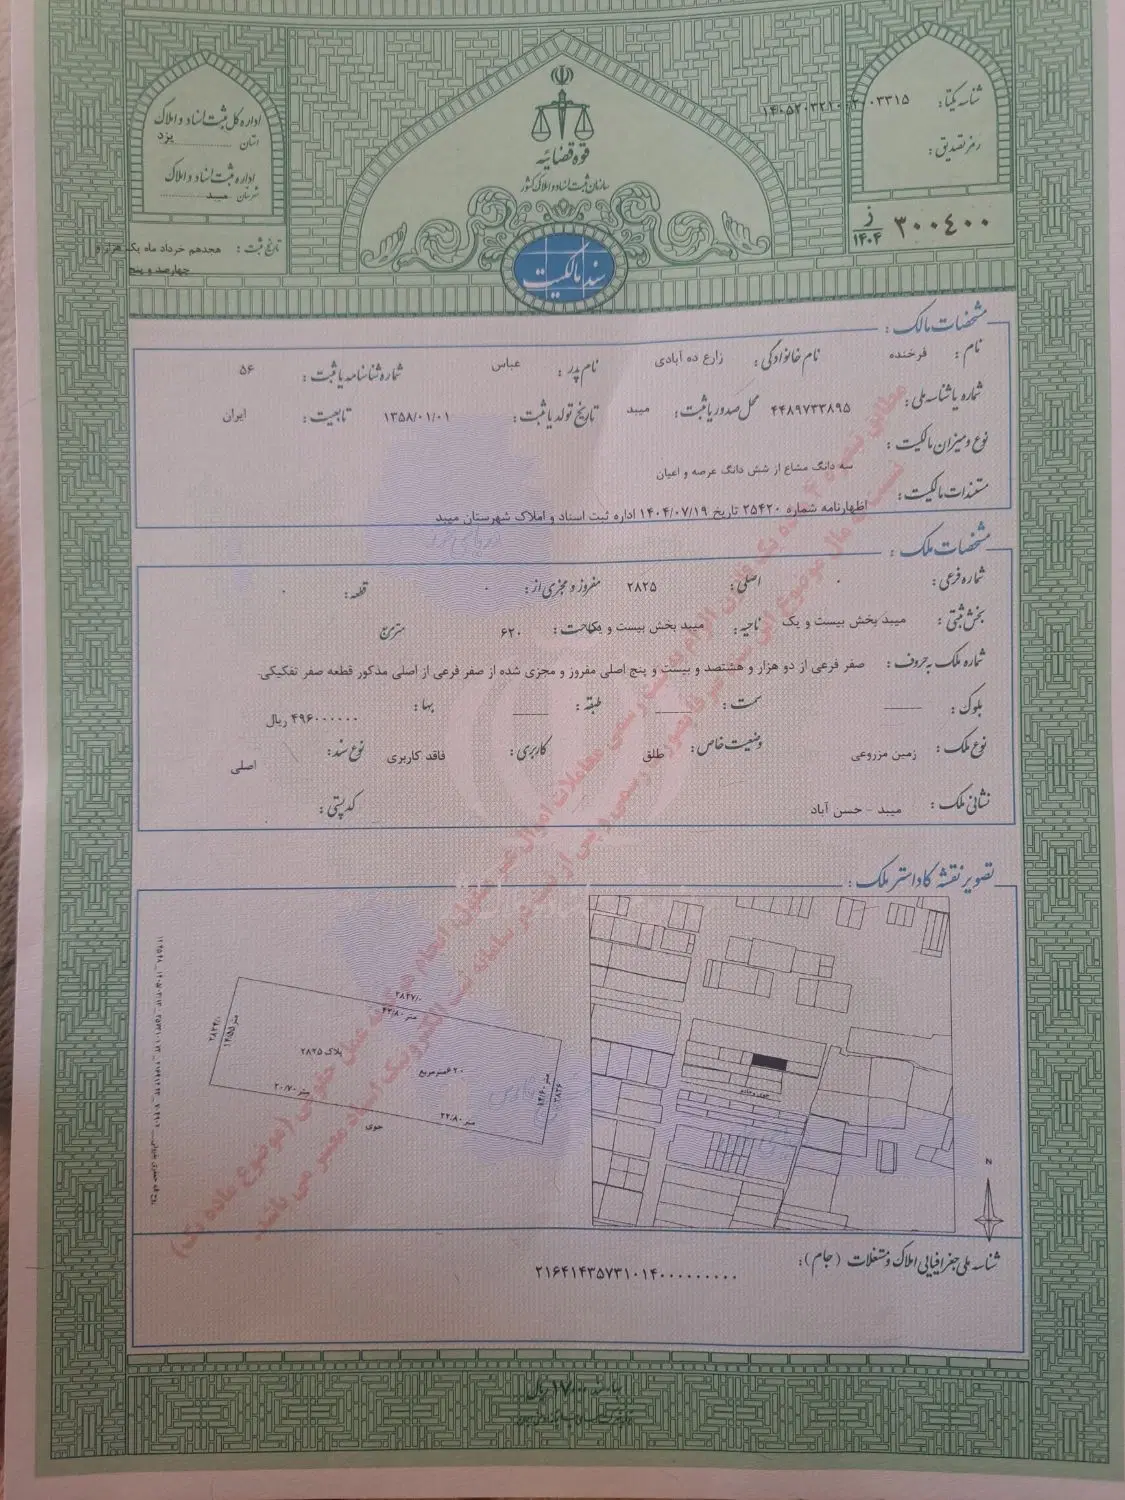 شناسه یکتا:
رمز تصدیق:
۳۰۰۴۰۰ ز ۱۴۰۴
قوه قضائیه
سازمان ثبت اسناد و املاک کشور
سند مالکیت
اداره کل ثبت اسناد و املاک
استان یزد
اداره ثبت اسناد و املاک
شهرستان میبد
تاریخ ثبت: هجدهم خرداد ماه یک هزار و
چهارصد و پنج
مشخصات مالک:
نام: فرخنده نام خانوادگی: زارع ده آبادی نام پدر: عباس شماره شناسنامه یا ثبت: ۵۶
شماره یا شناسه ملی: ۴۴۸۹۷۳۳۸۹۵ محل صدور یا ثبت: میبد تاریخ تولد یا ثبت: ۱۳۵۸/۰۱/۰۱ تابعیت: ایران
نوع و میزان مالکیت:
سه دانگ مشاع از شش دانگ عرصه و اعیان
مستندات مالکیت:
اظهارنامه شماره ۲۵۴۲۰ تاریخ ۱۴۰۴/۰۷/۱۹ اداره ثبت اسناد و املاک شهرستان میبد
مشخصات ملک:
شماره فرعی: ۰ اصلی: ۲۸۲۵ مفروز و مجزی از: ۰ قطعه: ۰
بخش ثبتی: میبد بخش بیست و یک ناحیه: میبد بخش بیست و یک مساحت: ۶۲۰ مترمربع
شماره ملک به حروف: صفر فرعی از دو هزار و هشتصد و بیست و پنج اصلی مفروز و مجزی شده از صفر فرعی از اصلی مذکور قطعه صفر تفکیکی.
بلوک: سمت: طبقه: بها: ۴۹۶۰۰۰۰۰۰ ریال
نوع ملک: زمین مزروعی وضعیت خاص: طلق کاربری: فاقد کاربری نوع سند: اصلی
نشانی ملک: میبد - حسن آباد کدپستی:
تصویر نقشه کاداستر ملک:
۲۸۲۷/۰
۴۳/۸۰ متر
۱۴/۵۵ متر
پلاک ۲۸۲۵
۶۲۰ مترمربع
۱۴/۶۰ متر
۲۸۲۶
۲۰/۷۰ متر
۲۲/۸۰ متر
جوی
N
شناسه ملی جغرافیایی املاک و مستغلات (جام):
۲۱۶۴۱۴۳۵۷۳۱۰۱۴۰۰۰۰۰۰۰۰۰